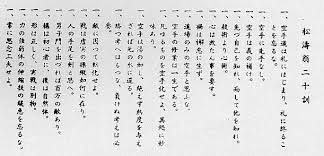 松濤翁二十訓
一、空手道は礼にはじまり、礼に終るこ
とを忘るな。
一、空手に先手なし。
一、空手は義の補け。
一、先づ自己を知れ、而して他を知れ。
一、技術より心術。
一、心は放たん事を要す。
一、禍は懈怠に生ず。
一、道場のみの空手と思ふな。
一、空手の修業は一生である。
一、凡ゆるものを空手化せよ、其処に妙
味あり。
一、空手は湯の如し、絶えず熱度を与え
ざれば元の水に還る。
一、勝つ考えはもつな、負けぬ考えは必
要。
一、敵に因って転化せよ。
一、戦は虚実の操縦如何に在り。
一、人の手足を剣と思へ。
一、男子門を出づれば百万の敵あり。
一、構は初心者に、後は自然体。
一、形は正しく、実戦は別物。
一、力の強弱体の伸縮技の緩急を忘るな。
一、常に思念工夫せよ。